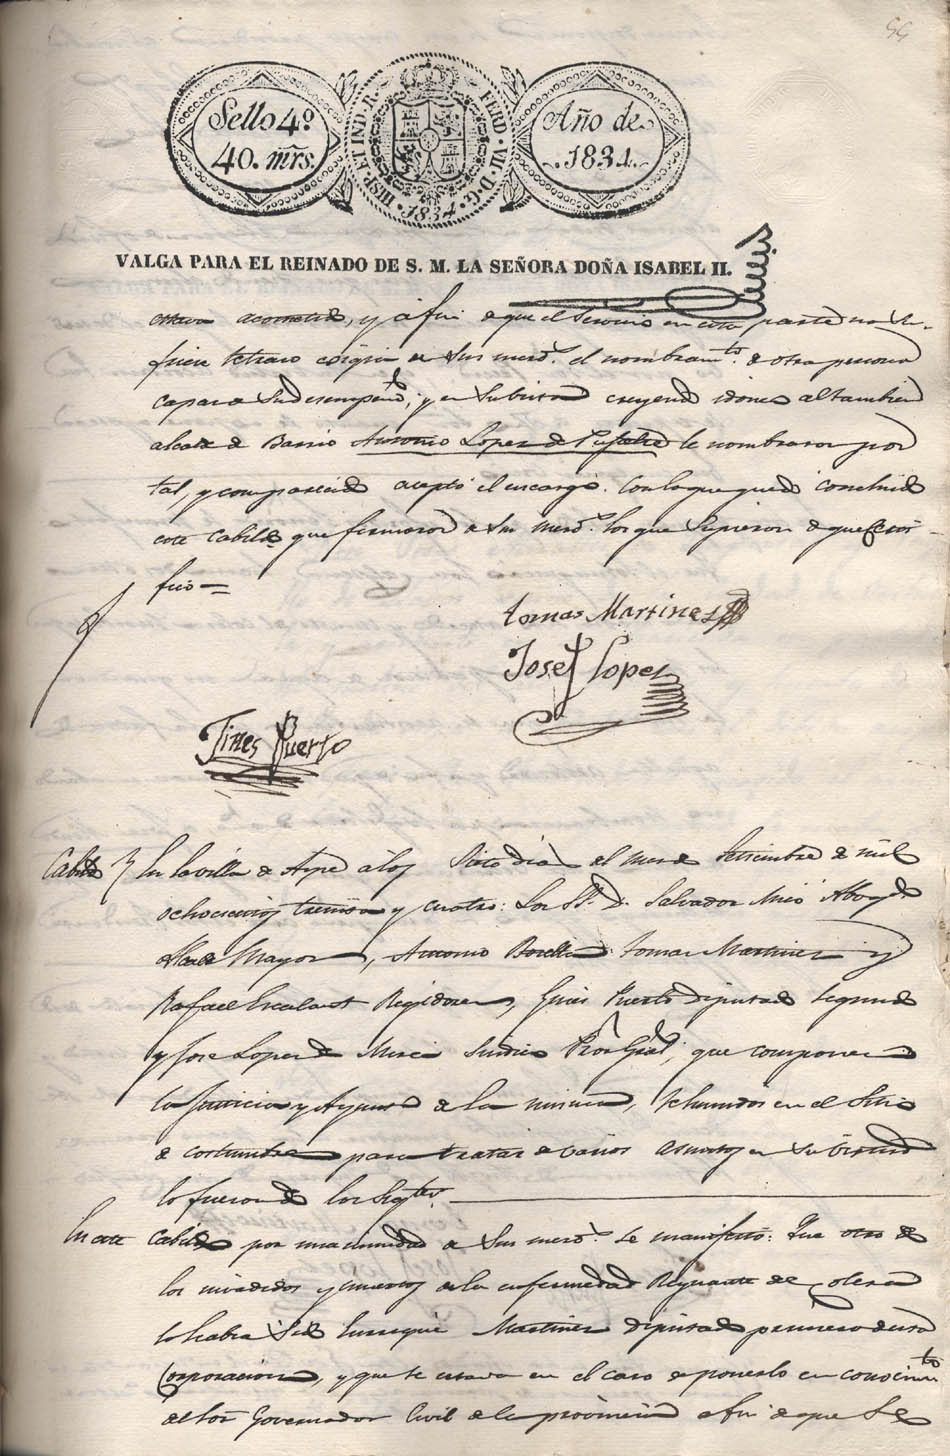 55
Sello 4º
40. mrs.
HISP. ET IND. R. FERD. VII. D. G.
1834
Año de
1834.
VALGA PARA EL REINADO DE S. M. LA SEÑORA DOÑA ISABEL II.
acometido, y á fin de que el Servicio en esta parte no su-
friese retraso exigia de Sus merds. el nombramto. de otra persona
capaz a su desempeño, y en su virtud creyendo idoneo al tambien
alcalde de Barrio Antonio Lopez de le nombraron por
tal, y comparecido aceptó el encargo. Con lo que quedó concluido
este Cabildo que firmaron a Sus merds. los que Supieron de que Certi-
fico =
tomas Martinez
Josef Lopez
Jines Puerto
Cabdo. En la villa de Aspe á los Siete dias del mes de Setiembre de mil
ochocientos treinta y cuatro: Los SS. D. Salvador Miró Abogdo.
Alcalde Mayor, Antonio Botella tomas Martinez y
Rafael Escalant Regidores, Gines Puerto Diputado Segundo
y Jose Lopez de Sindico Pror. Gral, que componen
la Justicia y Ayunto de la misma, reunidos en el Sitio
de costumbre para tratar de varios asuntos en su virtud
lo fueron de los Sigtes.
En este Cabildo por unanimidad de Sus merds. Se manifestó: Que otro de
los invadidos y muertos de la enfermedad Reynante del Colera
lo habia Sido Enrique Martinez Diputado primero de esta
Corporacion, y que se estava en el caso de ponerlo en conocimto.
del Sor. Governador Civil de la provincia á fin de que Se